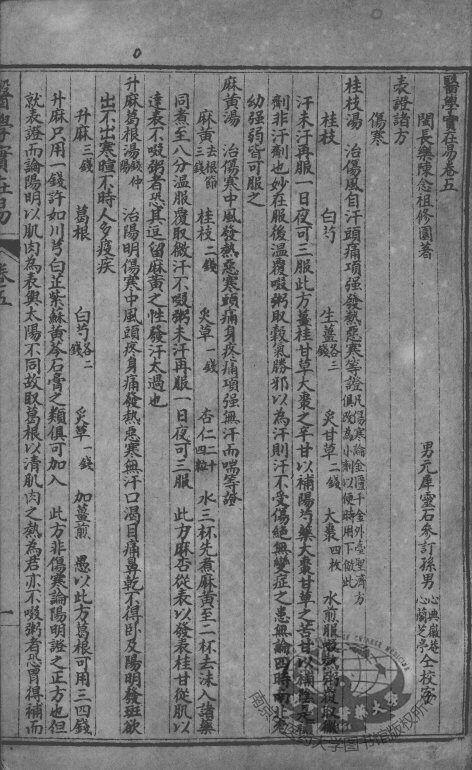 醫學實在易卷五
閩長樂陳念祖修園著 男元犀靈石參訂孫男心典徽菴心蘭芝亭仝校字
表證諸方
傷寒
桂枝湯 治傷風自汗頭痛項強發熱惡寒等證凡傷寒論金匱千金外臺聖濟方俱改為小劑以便時用下倣此
桂枝 白芍 生薑各三錢 炙甘草二錢 大棗四枚 水煎服
汗未汗再服一日夜可三服此方薑桂甘草大棗之辛甘以補陽芍藥大棗甘草之苦甘以補陰
劑非汗劑也妙在服後溫覆啜粥取穀氣勝邪以為汗則汗不受傷絕無變症之患無論四時
幼強弱皆可服之
麻黃湯 治傷寒中風發熱惡寒頭痛身疼痛項強無汗而喘等證
麻黃去根節三錢 桂枝二錢 炙草一錢 杏仁二十四粒 水三杯先煮麻黃至二杯去沫入諸藥
同煮至八分溫服覆取微汗不啜粥未汗再服一日夜可三服 此方麻杏從表以發表桂甘從肌以
達表不啜粥者恐其逗留麻黃之性發汗太過也
升麻葛根湯錢仲陽 治陽明傷寒中風頭疼身痛發熱惡寒無汗口渴目痛鼻乾不得臥及陽明發斑欲
出不出寒暄不時人多疫疾
升麻三錢 葛根 白芍各二錢 炙草一錢 加薑煎 愚以此方葛根可用三四錢
升麻只用一錢許如川芎白芷紫蘇黃芩石膏之類俱可加入 此方非傷寒論陽明證之正方也但
就表證而論陽明以肌肉為表與太陽不同故取葛根以清肌肉之熱為君亦不啜粥者恐胃得補而
醫學實在易 卷五 一